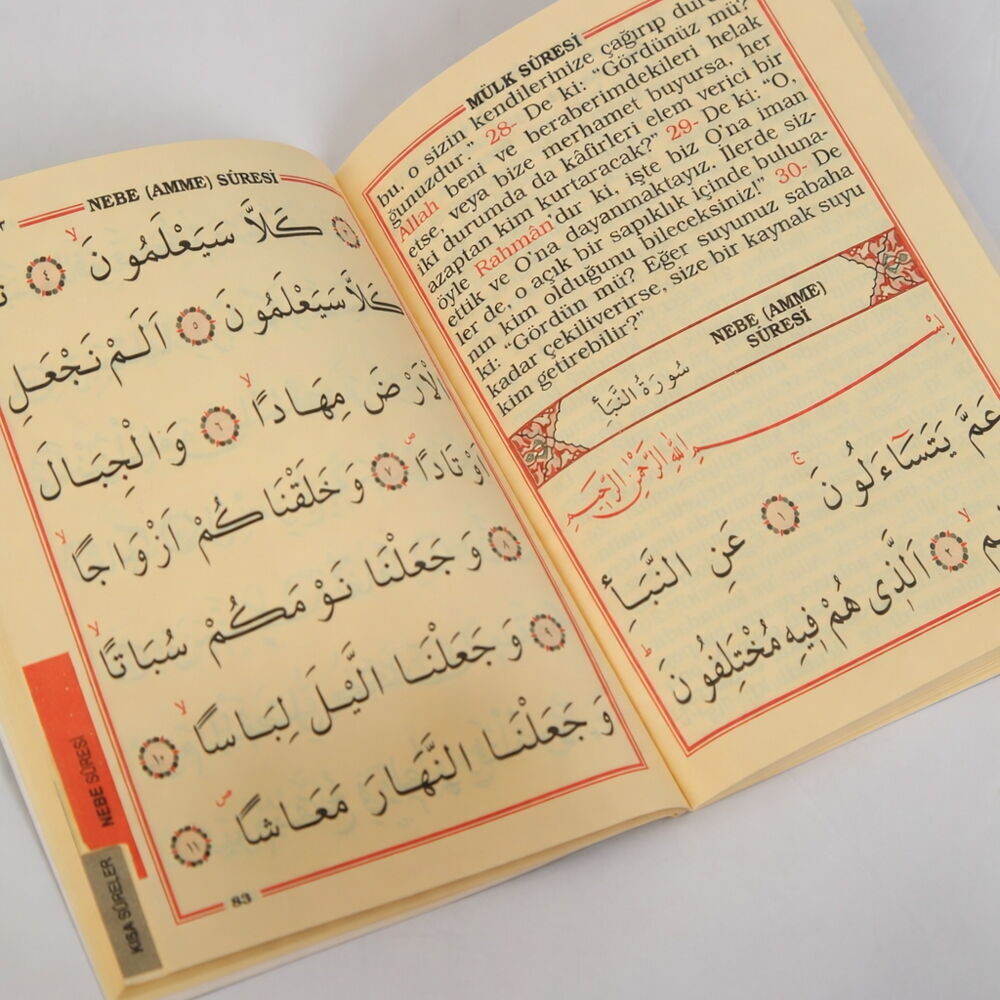 MÜLK SÛRESİ
bu, o sizin kendilerinize çağırıp dur-
ğunuzdur." 28- De ki: "Gördünüz mü?
Allah beni ve beraberimdekileri helak
etse, veya bize merhamet buyursa, her
iki durumda da kâfirleri elem verici bir
azaptan kim kurtaracak?" 29- De ki: "O,
öyle Rahmân'dır ki, işte biz O'na iman
ettik ve O'na dayanmaktayız. İlerde siz-
ler de, o açık bir sapıklık içinde buluna-
nın kim olduğunu bileceksiniz!" 30- De
ki: "Gördün mü? Eğer suyunuz sabaha
kadar çekiliverirse, size bir kaynak suyu
kim getirebilir?"
NEBE (AMME) SÛRESİ
سُورَةُ النَّبَأِ
بِسْمِ اللّٰهِ الرَّحْمٰنِ الرَّحِيمِ
عَمَّ يَتَسَٓاءَلُونَ ج ١ عَنِ النَّبَأِ
اَلَّذِى هُمْ فِيهِ مُخْتَلِفُونَ ط ٢
NEBE (AMME) SÛRESİ
كَلَّا سَيَعْلَمُونَ لا ٤
كَلَّا سَيَعْلَمُونَ ٥ اَلَمْ نَجْعَلِ
الْاَرْضَ مِهَادًا لا ٦ وَالْجِبَالَ
اَوْتَادًا ص ٧ وَخَلَقْنَاكُمْ اَزْوَاجًا لا
٨ وَجَعَلْنَا نَوْمَكُمْ سُبَاتًا لا
٩ وَجَعَلْنَا الَّيْلَ لِبَاسًا لا ١٠
وَجَعَلْنَا النَّهَارَ مَعَاشًا ص ١١
83
NEBE SÛRESİ
KISA SÛRELER